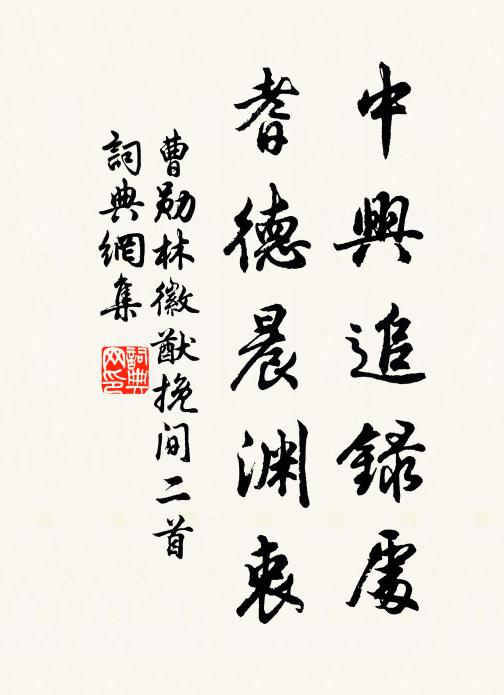 中興追錄處
耆德晨淵衷
曹勋林徽猷挽间二首
詞典網集
詞典网印